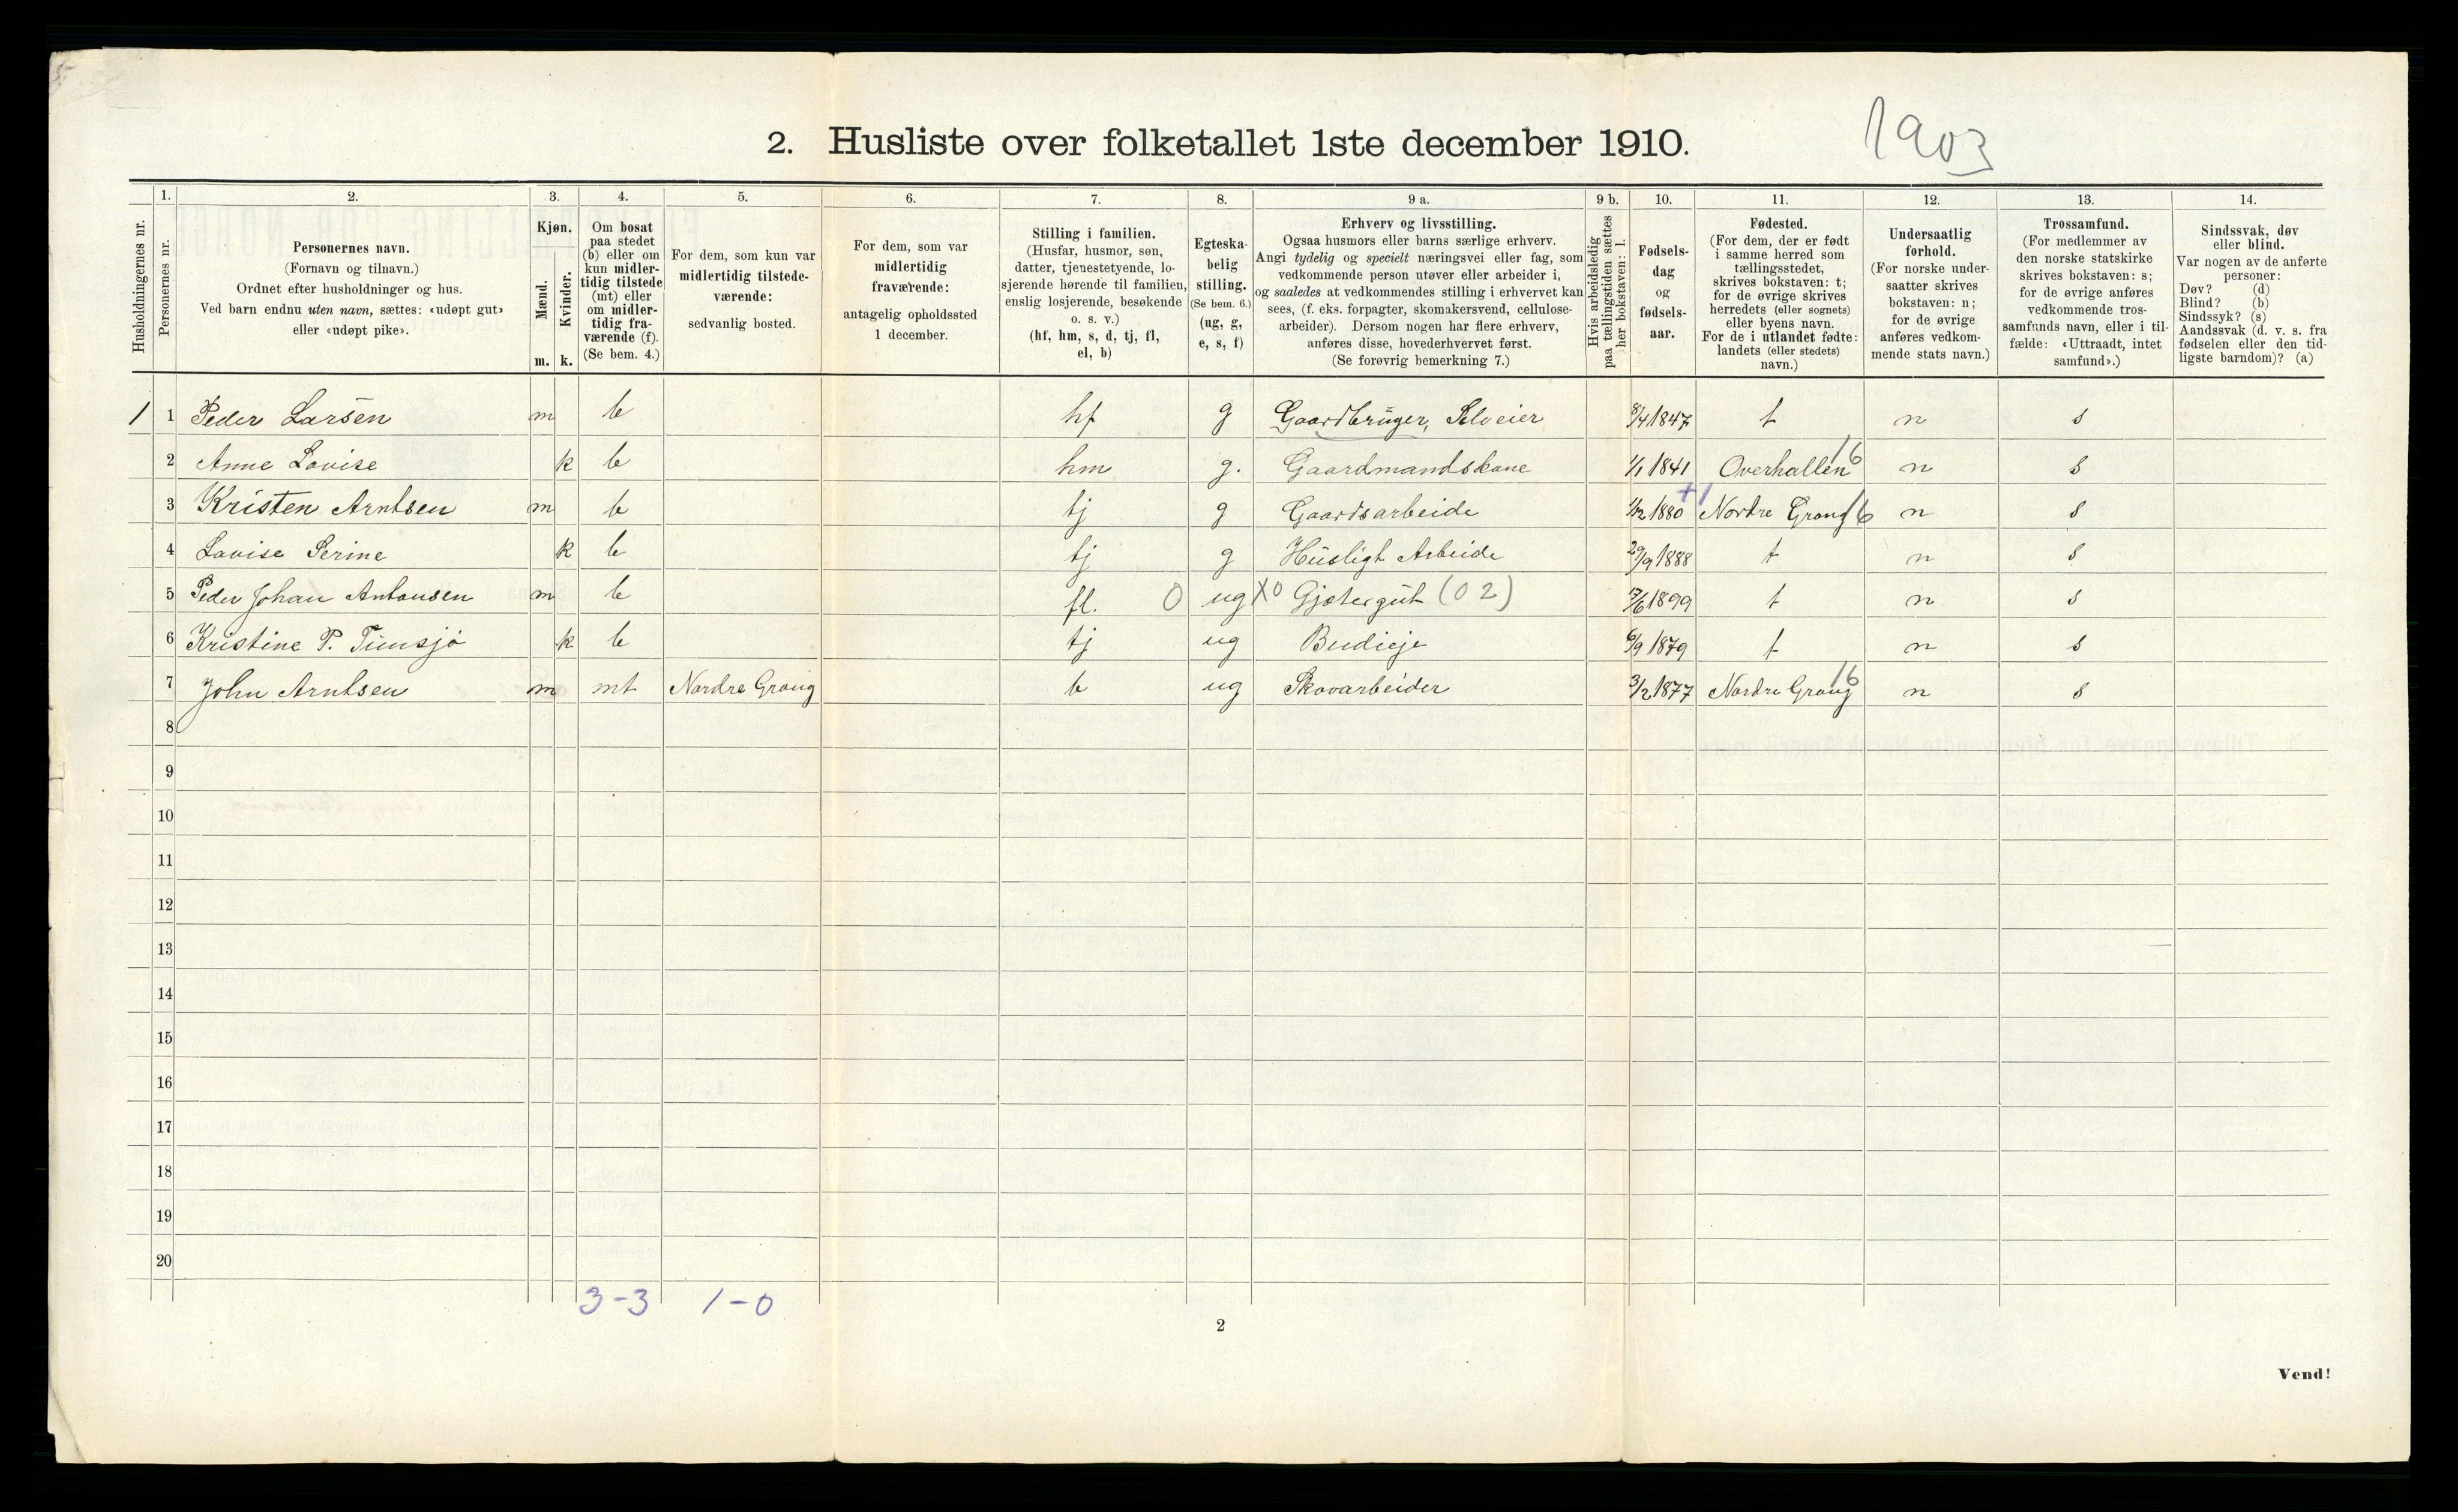 2. Husliste over folketallet 1ste december 1910. 1903
1. 2. 3. 4. 5. 6. 7. 8. 9 a. 9 b. 10. 11. 12. 13. 14.
Husholdningernes nr.
Personernes nr.
Personernes navn.
(Fornavn og tilnavn.)
Ordnet efter husholdninger og hus.
Ved barn endnu uten navn, sættes: «udøpt gut»
eller «udøpt pike».
Kjøn.
Mænd.
Kvinder.
m. k.
Om bosat
paa stedet
(b) eller om
kun midler-
tidig tilstede
(mt) eller
om midler-
tidig fra-
værende (f).
(Se bem. 4.)
For dem, som kun var
midlertidig tilstede-
værende:
sedvanlig bosted.
For dem, som var
midlertidig
fraværende:
antagelig opholdssted
1 december.
Stilling i familien.
(Husfar, husmor, søn,
datter, tjenestetyende, lo-
sjerende hørende til familien,
enslig losjerende, besøkende
o. s. v.)
(hf, hm, s, d, tj, fl,
el, b)
Egteska-
belig
stilling.
(Se bem. 6.)
(ug, g,
e, s, f)
Erhverv og livsstilling.
Ogsaa husmors eller barns særlige erhverv.
Angi tydelig og specielt næringsvei eller fag, som
vedkommende person utøver eller arbeider i,
og saaledes at vedkommendes stilling i erhvervet kan
sees, (f. eks. forpagter, skomakersvend, cellulose-
arbeider). Dersom nogen har flere erhverv,
anføres disse, hovederhvervet først.
(Se forøvrig bemerkning 7.)
Hvis arbeidsledig
paa tællingstiden sættes
her bokstaven: l.
Fødsels-
dag
og
fødsels-
aar.
Fødested.
(For dem, der er født
i samme herred som
tællingsstedet,
skrives bokstaven: t;
for de øvrige skrives
herredets (eller sognets)
eller byens navn.
For de i utlandet fødte:
landets (eller stedets)
navn.)
Undersaatlig
forhold.
(For norske under-
saatter skrives
bokstaven: n;
for de øvrige
anføres vedkom-
mende stats navn.)
Trossamfund.
(For medlemmer av
den norske statskirke
skrives bokstaven: s;
for de øvrige anføres
vedkommende tros-
samfunds navn, eller i til-
fælde: «Uttraadt, intet
samfund».)
Sindssvak, døv
eller blind.
Var nogen av de anførte
personer:
Døv? (d)
Blind? (b)
Sindssyk? (s)
Aandssvak (d. v. s. fra
fødselen eller den tid-
ligste barndom)? (a)
1 1 Peder Larsen m b hf g Gaardbruger, Selveier 8/4 1847 t n s
2 Anne Lovise k b hm g. Gaardmandskone 1/1 1841 Overhallen 16 n s
3 Kristen Arntsen m b tj g Gaardsarbeide 1/12 1880 +1 Nordre Grong 16 n s
4 Lovise Serine k b tj g Husligt Arbeide 29/9 1888 t n s
5 Peder Johan Antonsen m b fl. 0 ug X0 Gjætergut (02) 7/6 1899 t n s
6 Kristine P. Tunsjø k b tj ug Budieje 6/9 1879 t n s
7 John Arntsen m mt Nordre Grong b ug Skovarbeider 3/2 1877 Nordre Grong 16 n s
8
9
10
11
12
13
14
15
16
17
18
19
20
3-3 1-0
2
Vend!